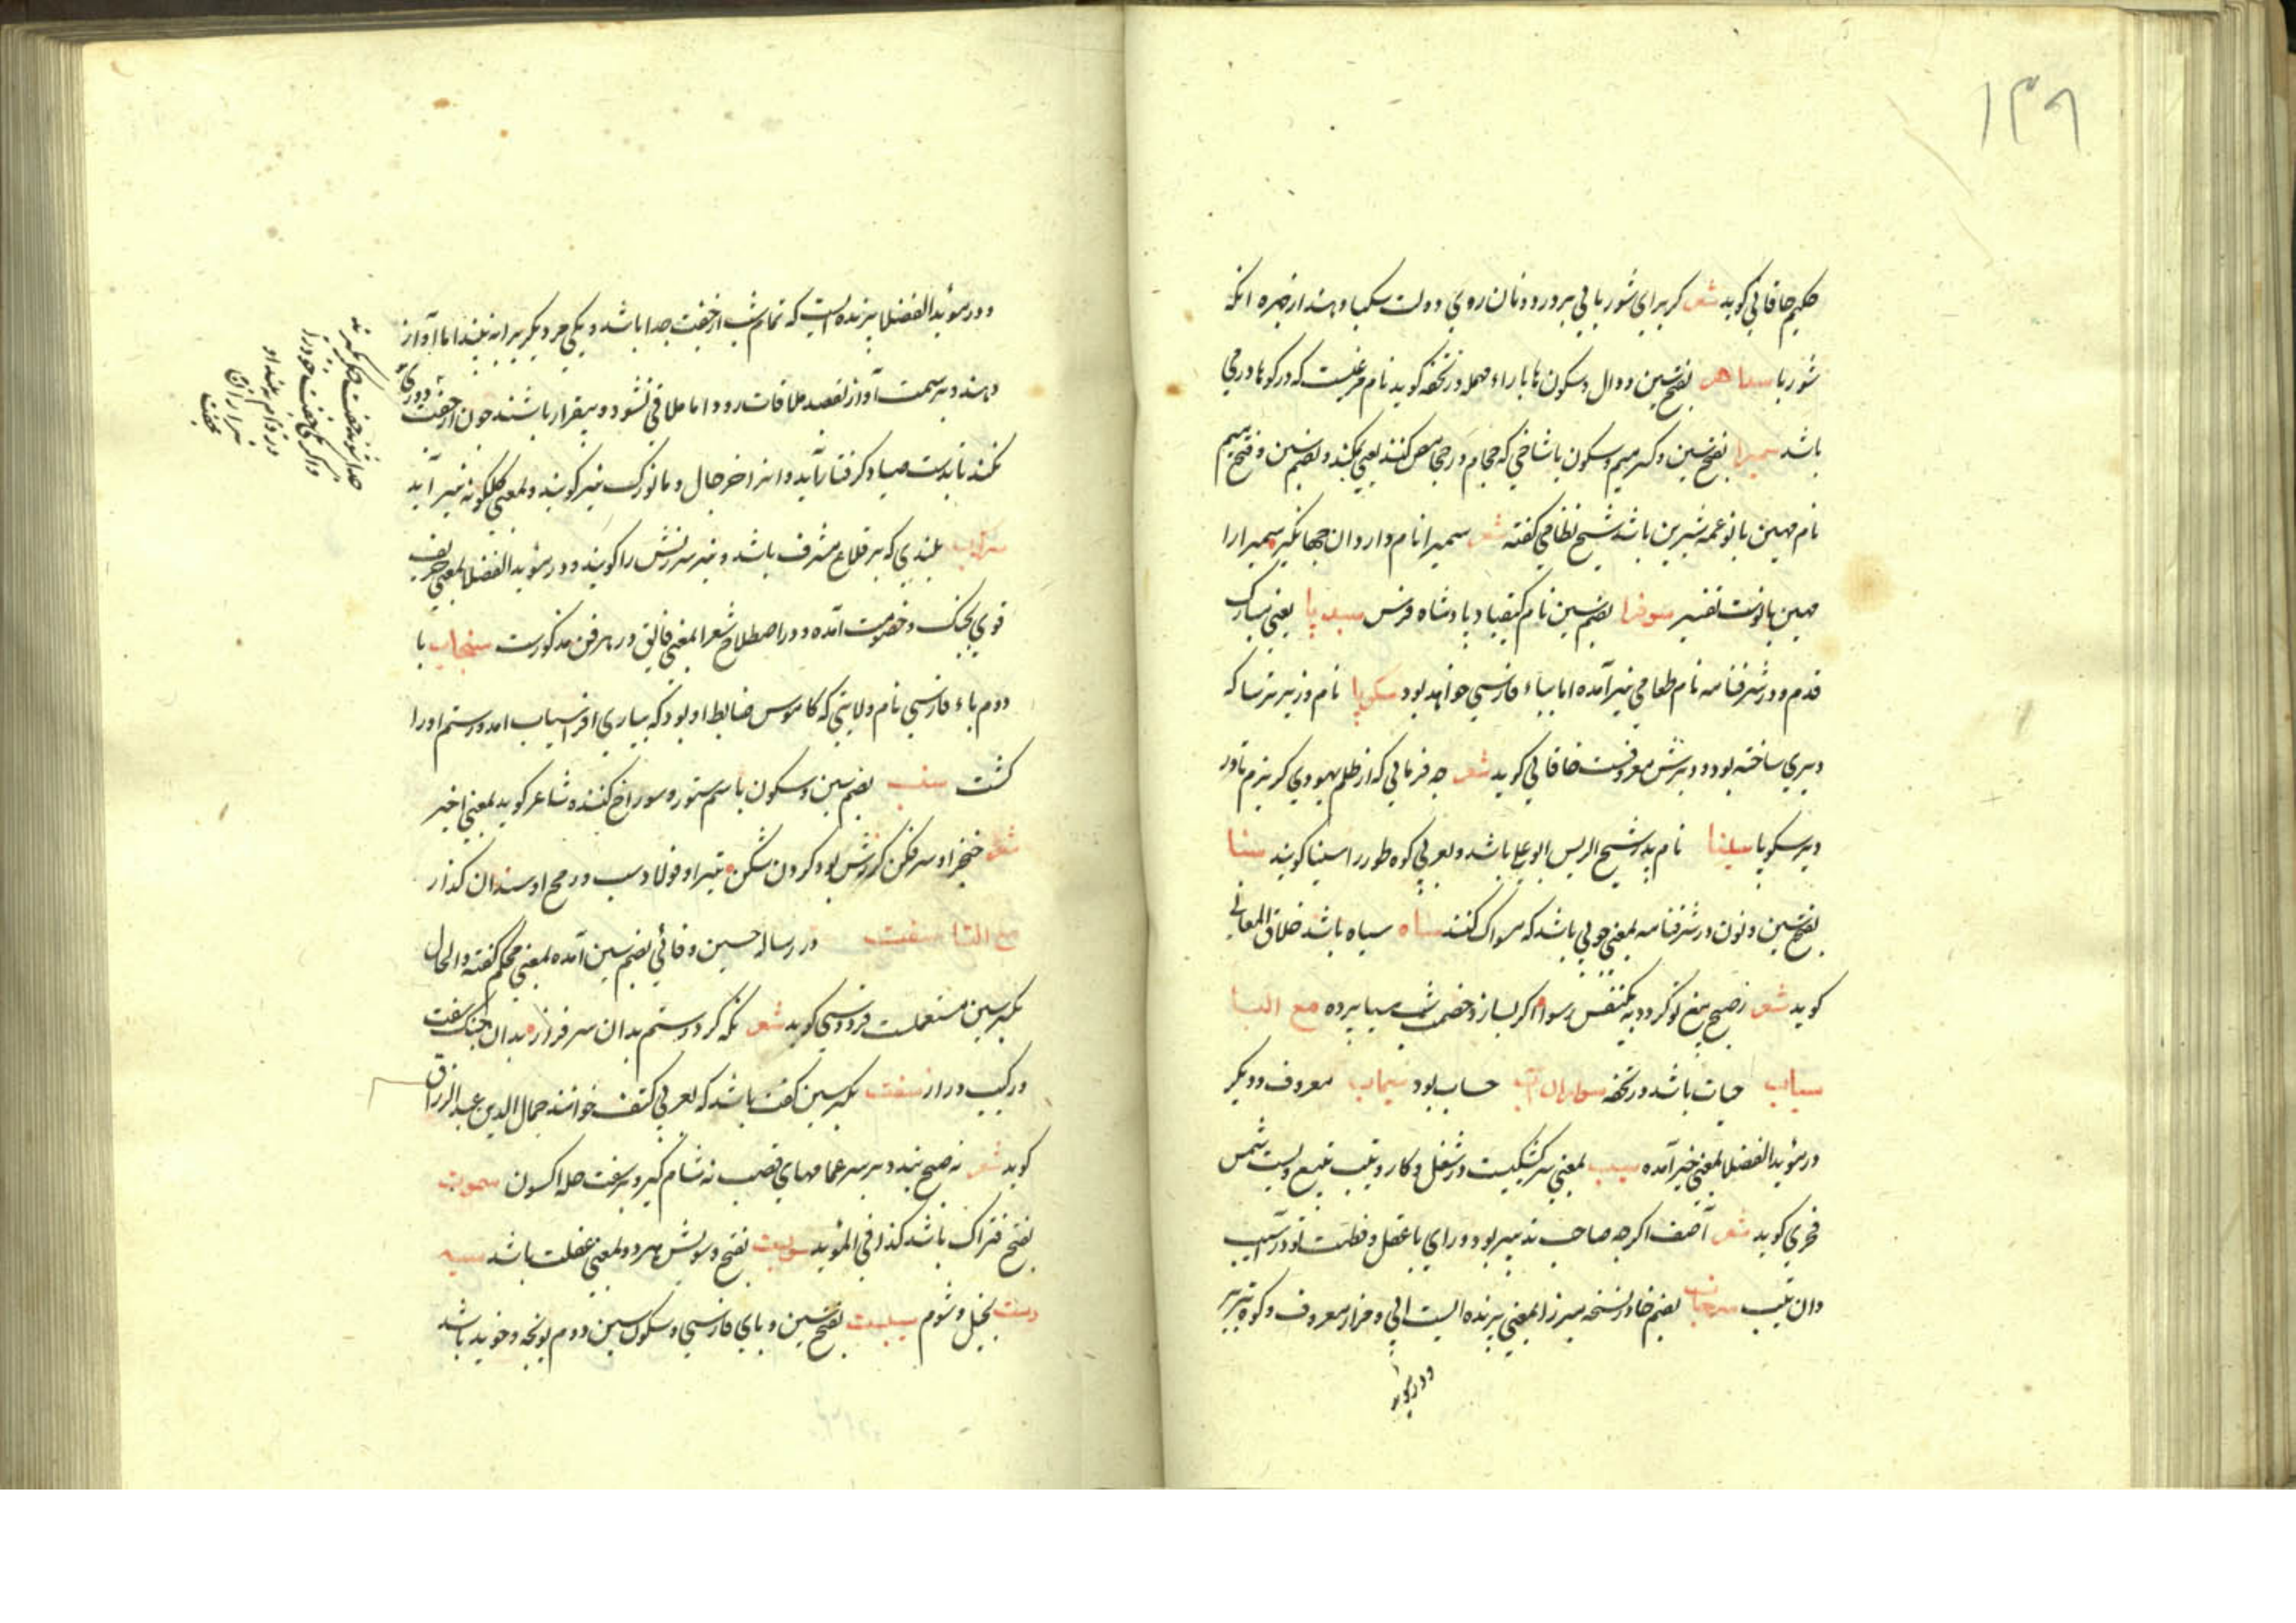 ۱۳۹
حکیم خاقانی کوید شعر کر برای شوربایی بر در دونان روی دولت سکبا دهند از خیره انکه
شوربا سداهر بفتح سین و دال و سکون ها با راء مهمله در تحفه کوید نام مرغیست که در کوها درمی
باشد سمیرا بفتح سین و کسر میم و سکون یا شاخی که حجام در حجامت کنند یعنی مکند و بضم سین و فتح میم
نام مهین بانو عمه شیرین باشد شیخ نظامی کفته شعر سمیرا نام دارد ان جهانکیر سمیرا را
مهین بانوست تفسیر سوفرا بضم سین نام کیقباد پادشاه فرس سبدپا یعنی مبارک
قدم و در شرفنامه نام طعامی نیز آمده اما بباء فارسی خواهد بود سکوپا نام وزیر ترسا که
دیری ساخته بود و دیرش معروفست خاقانی کوید شعر چه فرمایی که از ظلم یهودی کریزم تا در
دیر سکوپا سینا نام پدر شیخ الریس ابو علی باشد و بعربی کوه طور را سینا کویند سنا
بفتح سین و نون در شرفنامه بمعنی چوبی باشد که مسواک کنند سیاه سیاه باشد خلاق المعانی
کوید شعر ز صبح تیغ تو کردد بیکنفس رسوا اکر بسازد خصمت شب سیا پرده مع البا
سیاب حیات باشد در تحفه حساب بود سیماب معروف و دیکر
در مؤید الفضلا بمعنی خیر آمده سیب بمعنی سرکشتکیست در شغل و کار و تیب تبع ویست شمس
فخری کوید شعر آصف اکر چه صاحب تدبیر بود و رای با عقل و فطنت تو در آسیب
وان تیب سرخاب بضم خا در نسخه میرزا بمعنی پرنده ایست ابی و مزار معروف و کوه تبریز
و در موید
و در مؤید الفضلا پرنده ایست که تمام شب از جفت جدا باشد و یکی مر دیکریرا نه بیند اما آواز
دهند و بر سمت آواز بقصد ملاقات رود اما ملاقی نشود و بیقرار باشند چون از جفت دور
نکند تا بدست صیاد کرفتار آید و انرا خرچال و مانورک نیز کویند و بمعنی کلکونه نیز آید
سراب بلندی که بر قلاع مشرف باشد و نیز سرزنش را کویند و در مؤید الفضلا بمعنی حریف
قوی بجنک و خصومت آمده و در اصطلاح شعرا بمعنی فایق در هر فن مذکورست سنجاب با
دوم باء فارسی نام ولایتی که کاموس ضابط او بود که بیاری افراسیاب امد و رستم او را
کشت سنب بضم سین و سکون با سم ستور و سوراخ کننده شاعر کوید بمعنی اخیر
شعر خنجر او سر فکن کرزش بود کردن شکن تیر او فولاد سنب و رمح او سندان کذار
مع التا سفت در رساله حسین وفائی بضم سین آمده بمعنی محکم کفته والحال
بکسر سین مستعملست فردوسی کوید شعر نکه کرد رستم بدان سرفراز بدان چنک سفت
و رکیب دراز سفت بکسر سین کتف باشد که بعربی کتف خوانند جمال الدین عبد الرزاق
کوید شعر نه صبح بندد بر سر عمامهای قصب نه شام کیرد بر سفت حله اکسون سموت
بفتح فتراک باشد کذا فی المؤید بفتح و سویش هر دو بمعنی غفلت باشد سیه
دست بخیل و شوم سپست بفتح سین و بای فارسی و سکون سین دوم یونجه و خوید باشد
جدا شوند
و اکر یکی جفت خود را
در دام بیند او
نیز از ان
جفت